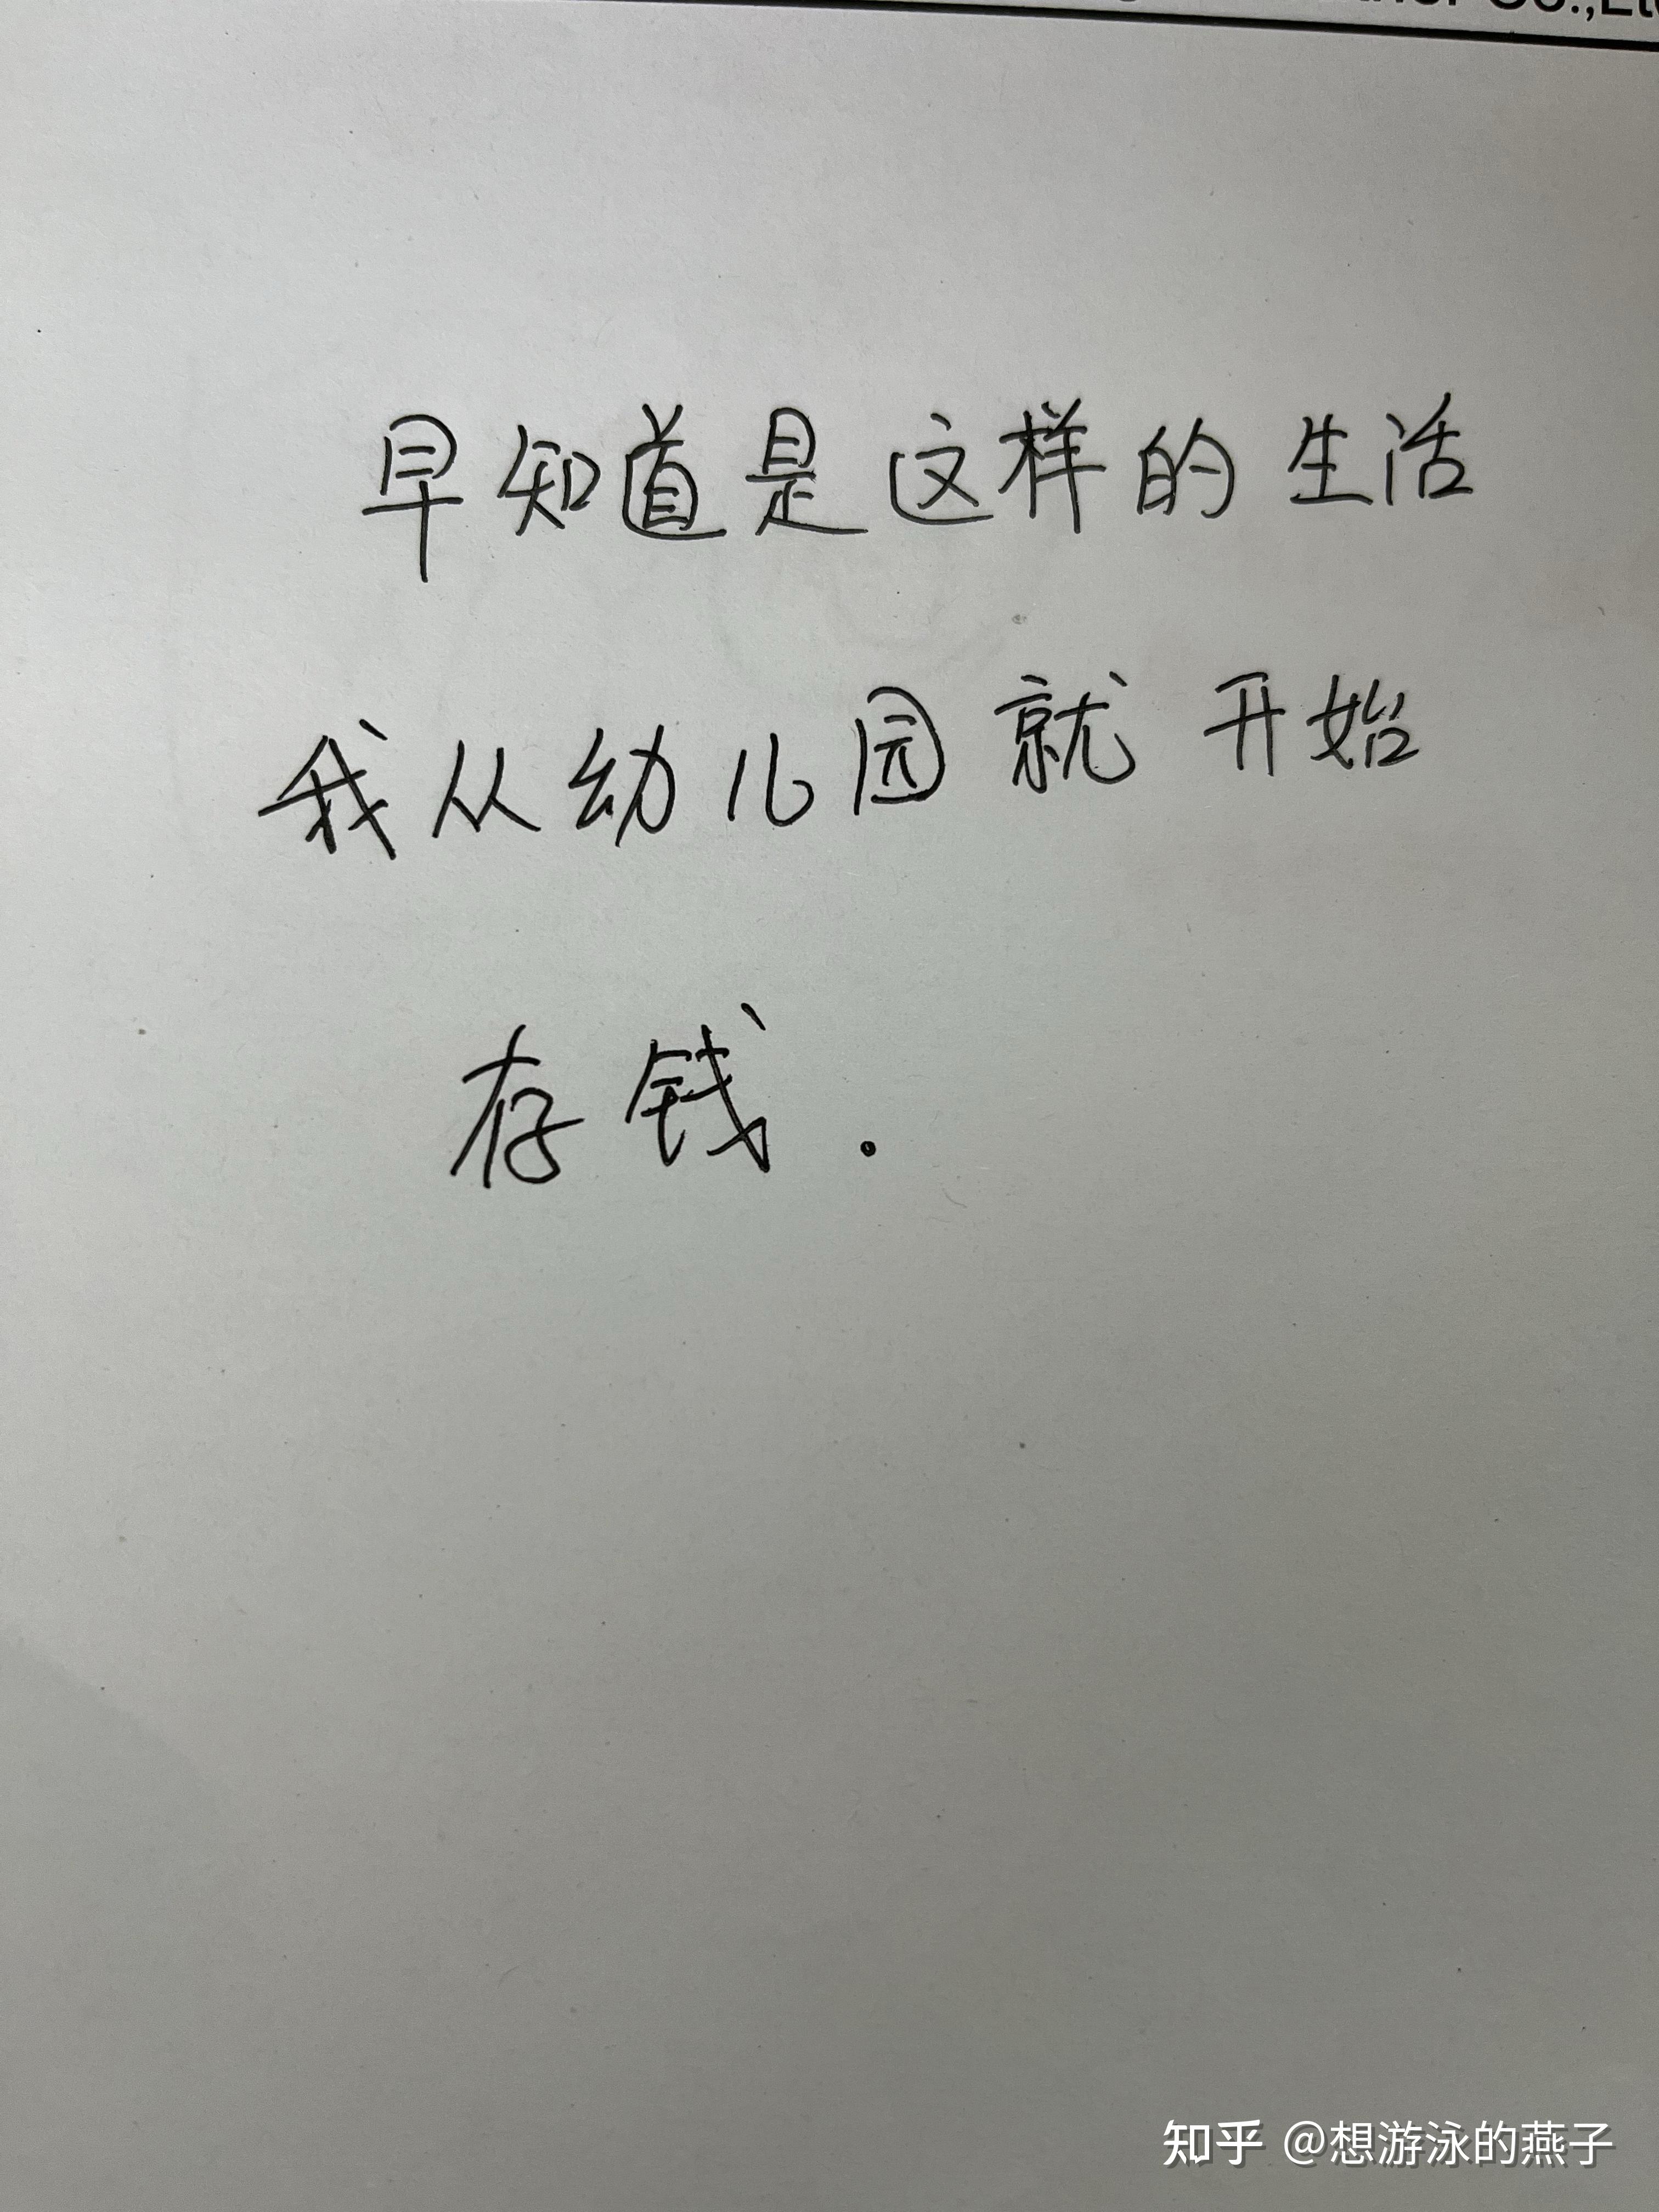 Co.,Ltd
早知道是这样的生活
我从幼儿园就开始
存钱.
知乎 @想游泳的燕子